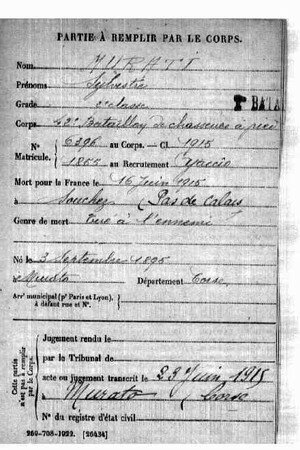 PARTIE À REMPLIR PAR LE CORPS.
Nom MURATI
Prénoms Sylvestre
Grade 2e classe
BATA
Corps 42e Bataillon de chasseurs à pied
N° 6396 au Corps. — Cl. 1915
Matricule. 1855 au Recrutement Ajaccio
Mort pour la France le 16 Juin 1915
à Souchez Pas de Calais
Genre de mort Tué à l'ennemi
Né le 3 Septembre 1895
à Murato Département Corse
Arrt municipal (pr Paris et Lyon),
à défaut rue et N°.
Cette partie
n'est pas à remplir
par le Corps.
Jugement rendu le
par le Tribunal de
acte ou jugement transcrit le 29 Juin 1915
à Murato Corse
N° du registre d'état civil
260-708-1922. [26434]